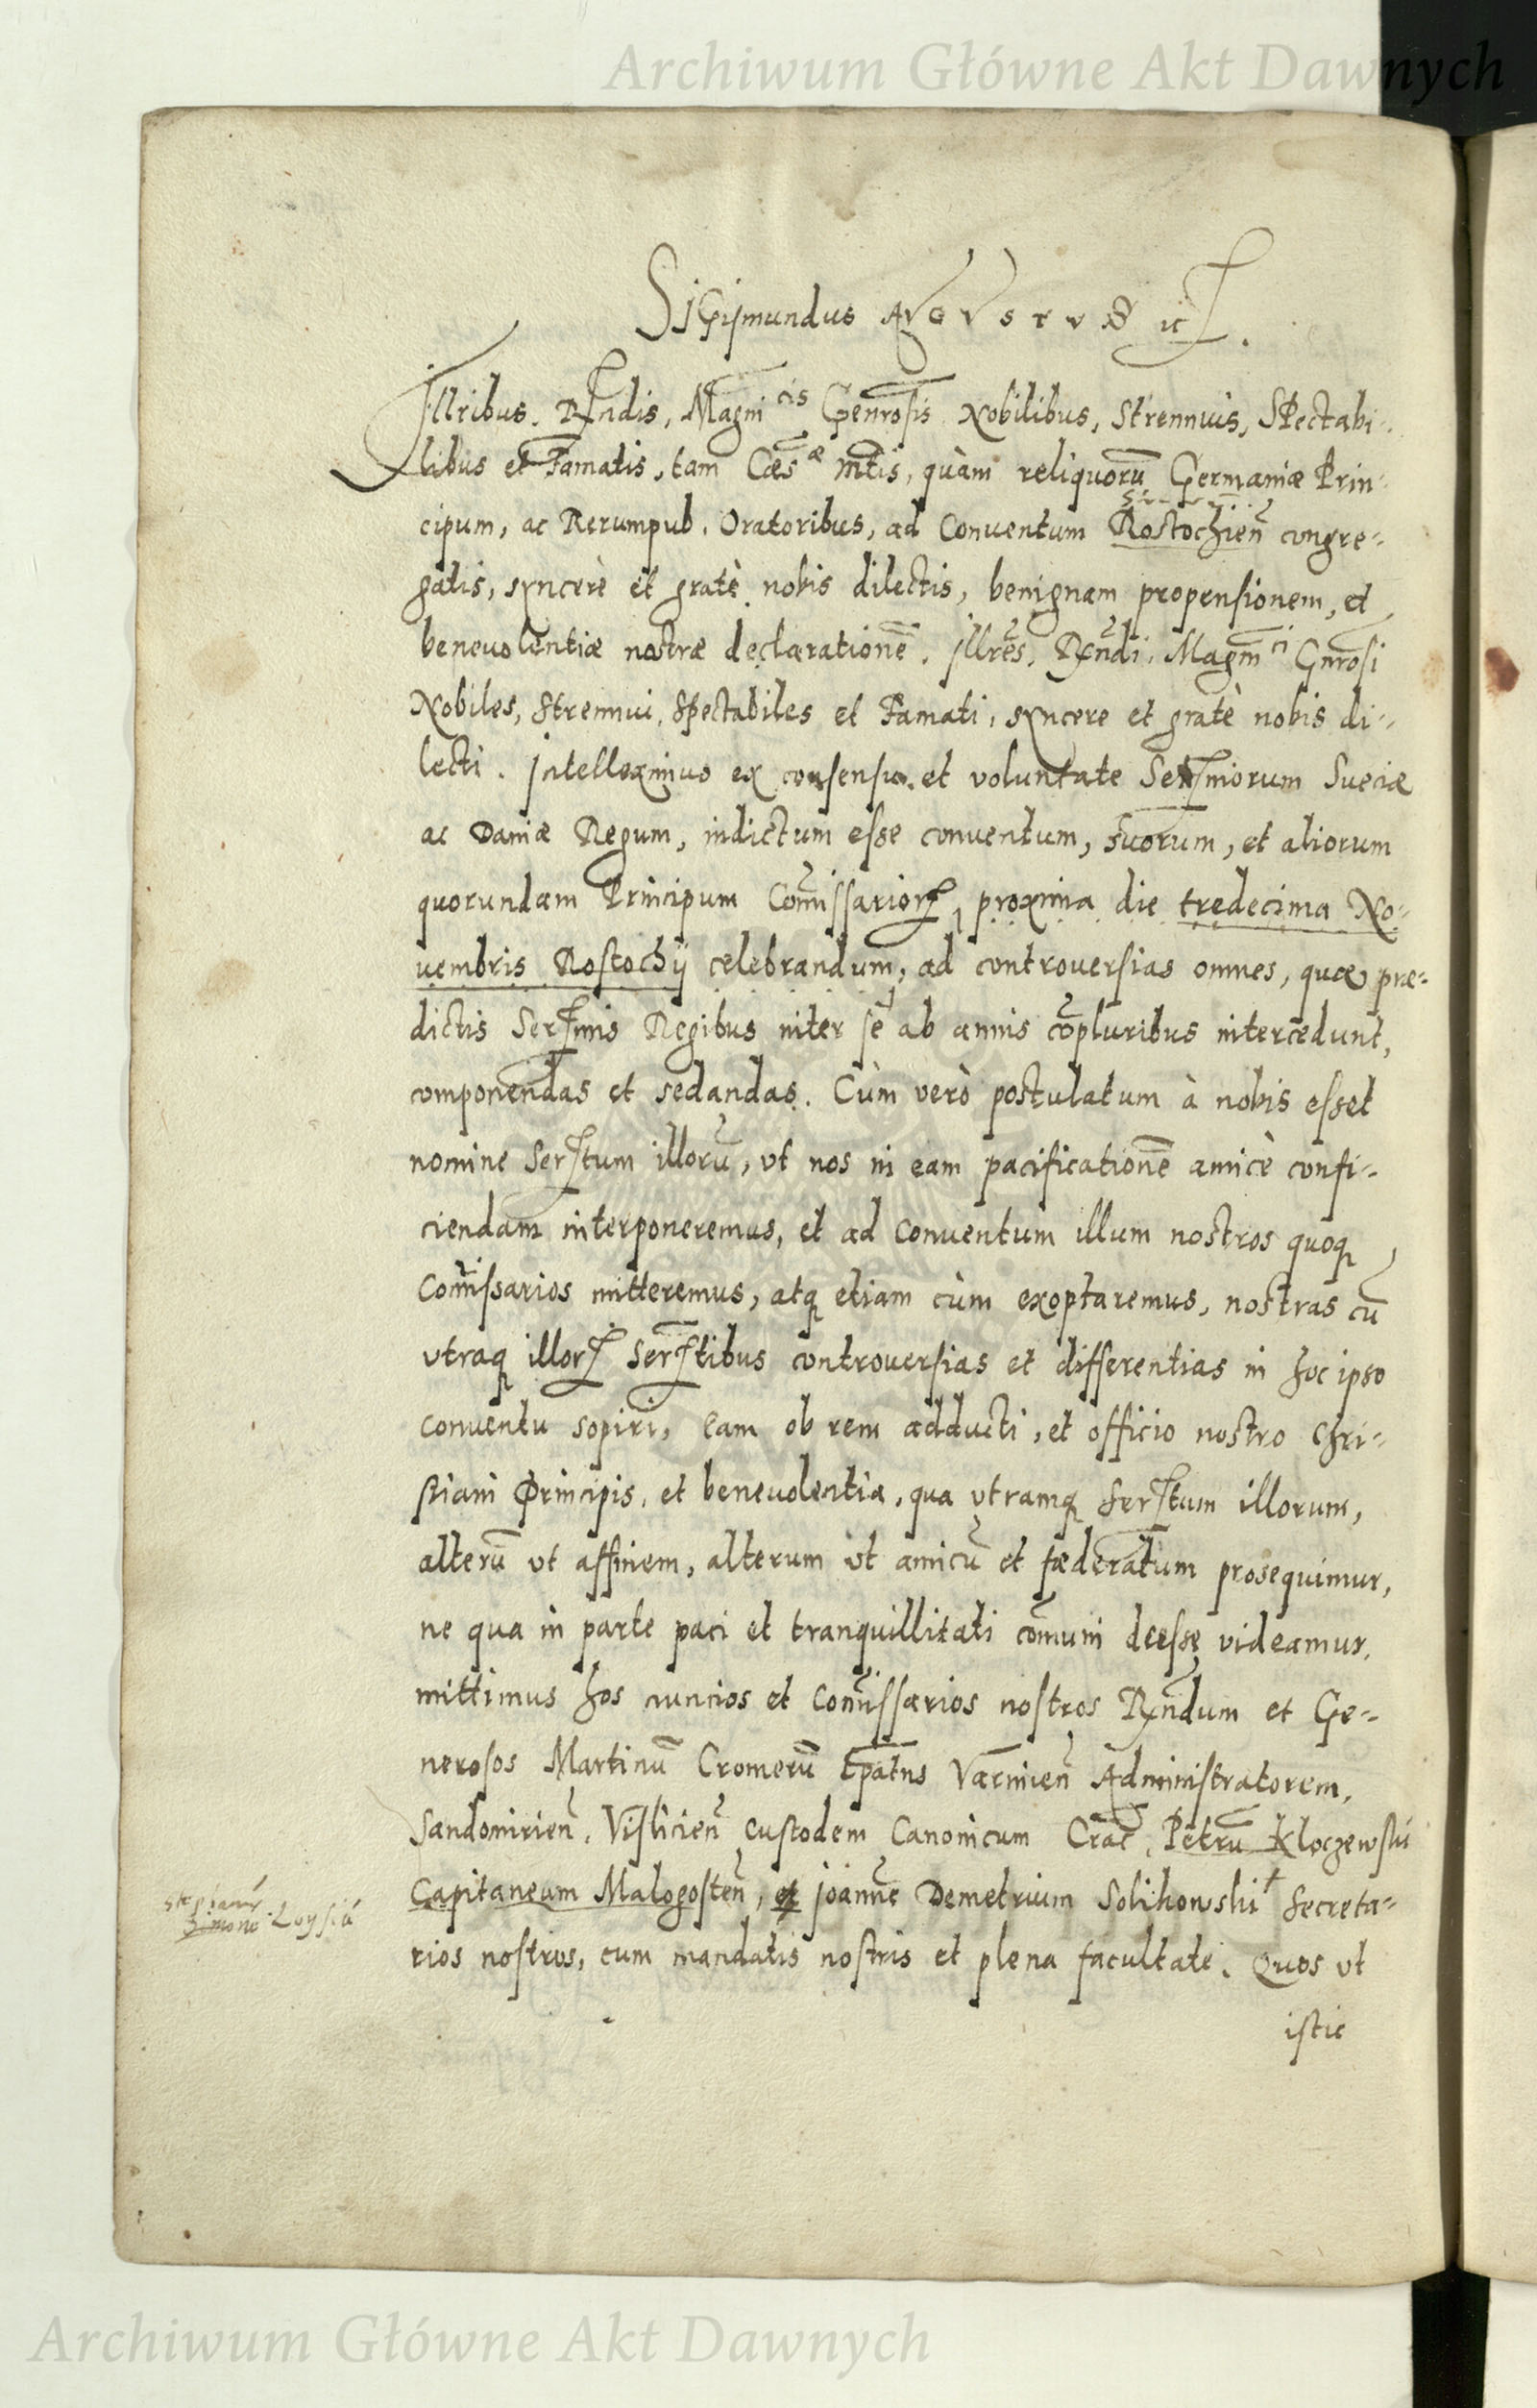 Archiwum Główne Akt Dawnych
Sigismundus AVGVSTVS etc.
Illribus. Rndis, Magnicis Genrosis Nobilibus, Strennuis, Spectabi-
libus et Famatis, tam Cæsæ Mtis, quàm reliquorū Germaniæ Prin-
cipum, ac Rerumpub. Oratoribus, ad Conuentum Rostochień congre-
gatis, syncerè et gratè nobis dilectis, benignam propensionem, et
beneuolentiæ nostræ declarationē. Illres, Rndi, Magnici Gnrosi
Nobiles, Strennui, Spectabiles et Famati, syncere et gratè nobis di-
lecti. Intelleximus ex consensu et voluntate Sermiorum Sueciæ
ac Daniæ Regum, indictum esse conuentum, suorum, et aliorum
quorundam Principum Comissarior, proxima die tredecima No-
uembris Rostochij celebrandum, ad controuersias omnes, quæ præ-
dictis Sermis Regibus inter se ab annis cōpluribus intercedunt,
componendas et sedandas. Cùm verò postulatum à nobis esset
nomine Sertum illorū, vt nos in eam pacificationē amicè confi-
ciendam interponeremus, et ad conuentum illum nostros quoq
Comissarios mitteremus, atq etiam cùm exoptaremus, nostras cū
vtraq illor Sertibus controuersias et differentias in hoc ipso
conuentu sopiri, eam ob rem adducti, et officio nostro Chri-
stiani Principis, et beneuolentia, qua vtramq Sertum illorum,
alterū vt affinem, alterum vt amicū et fœderatum prosequimur,
ne qua in parte paci et tranquillitati comuni deesse videamur,
mittimus hos nuncios et Comissarios nostros Rndum et Ge-
nerosos Martinū Cromerū Epatus Varmień Administratorem,
Sandomirień, Vislicień Custodem Canonicum Crac, Petrū Kloczewski
Capitaneum Malogosteń, et Joannē Demetrium Solikowski Secreta-
Loysiū
rios nostros, cum mandatis nostris et plena facultate. Quos vt
istic
Archiwum Główne Akt Dawnych